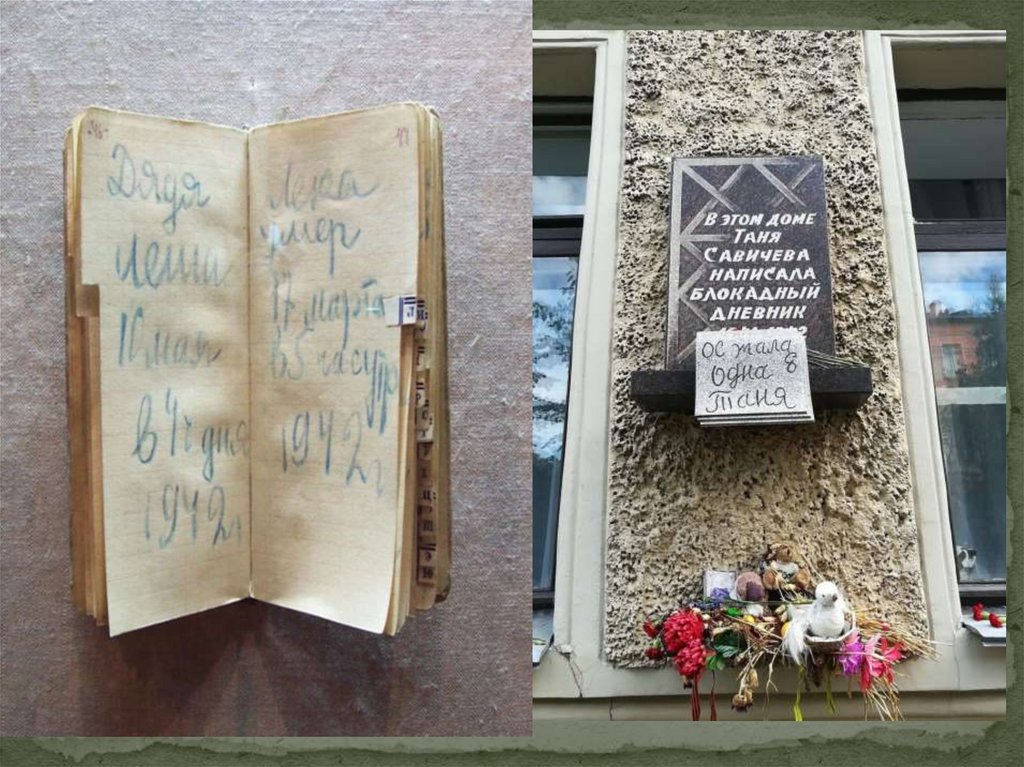 Дядя
Леша
10 мая
в 4 ч дня
1942 г
Лека
умер
17 марта
в 5 часутр
1942 г
В ЭТОМ ДОМЕ
ТАНЯ
САВИЧЕВА
НАПИСАЛА
БЛОКАДНЫЙ
ДНЕВНИК
ОСТАЛАСЬ
ОДНА
ТАНЯ